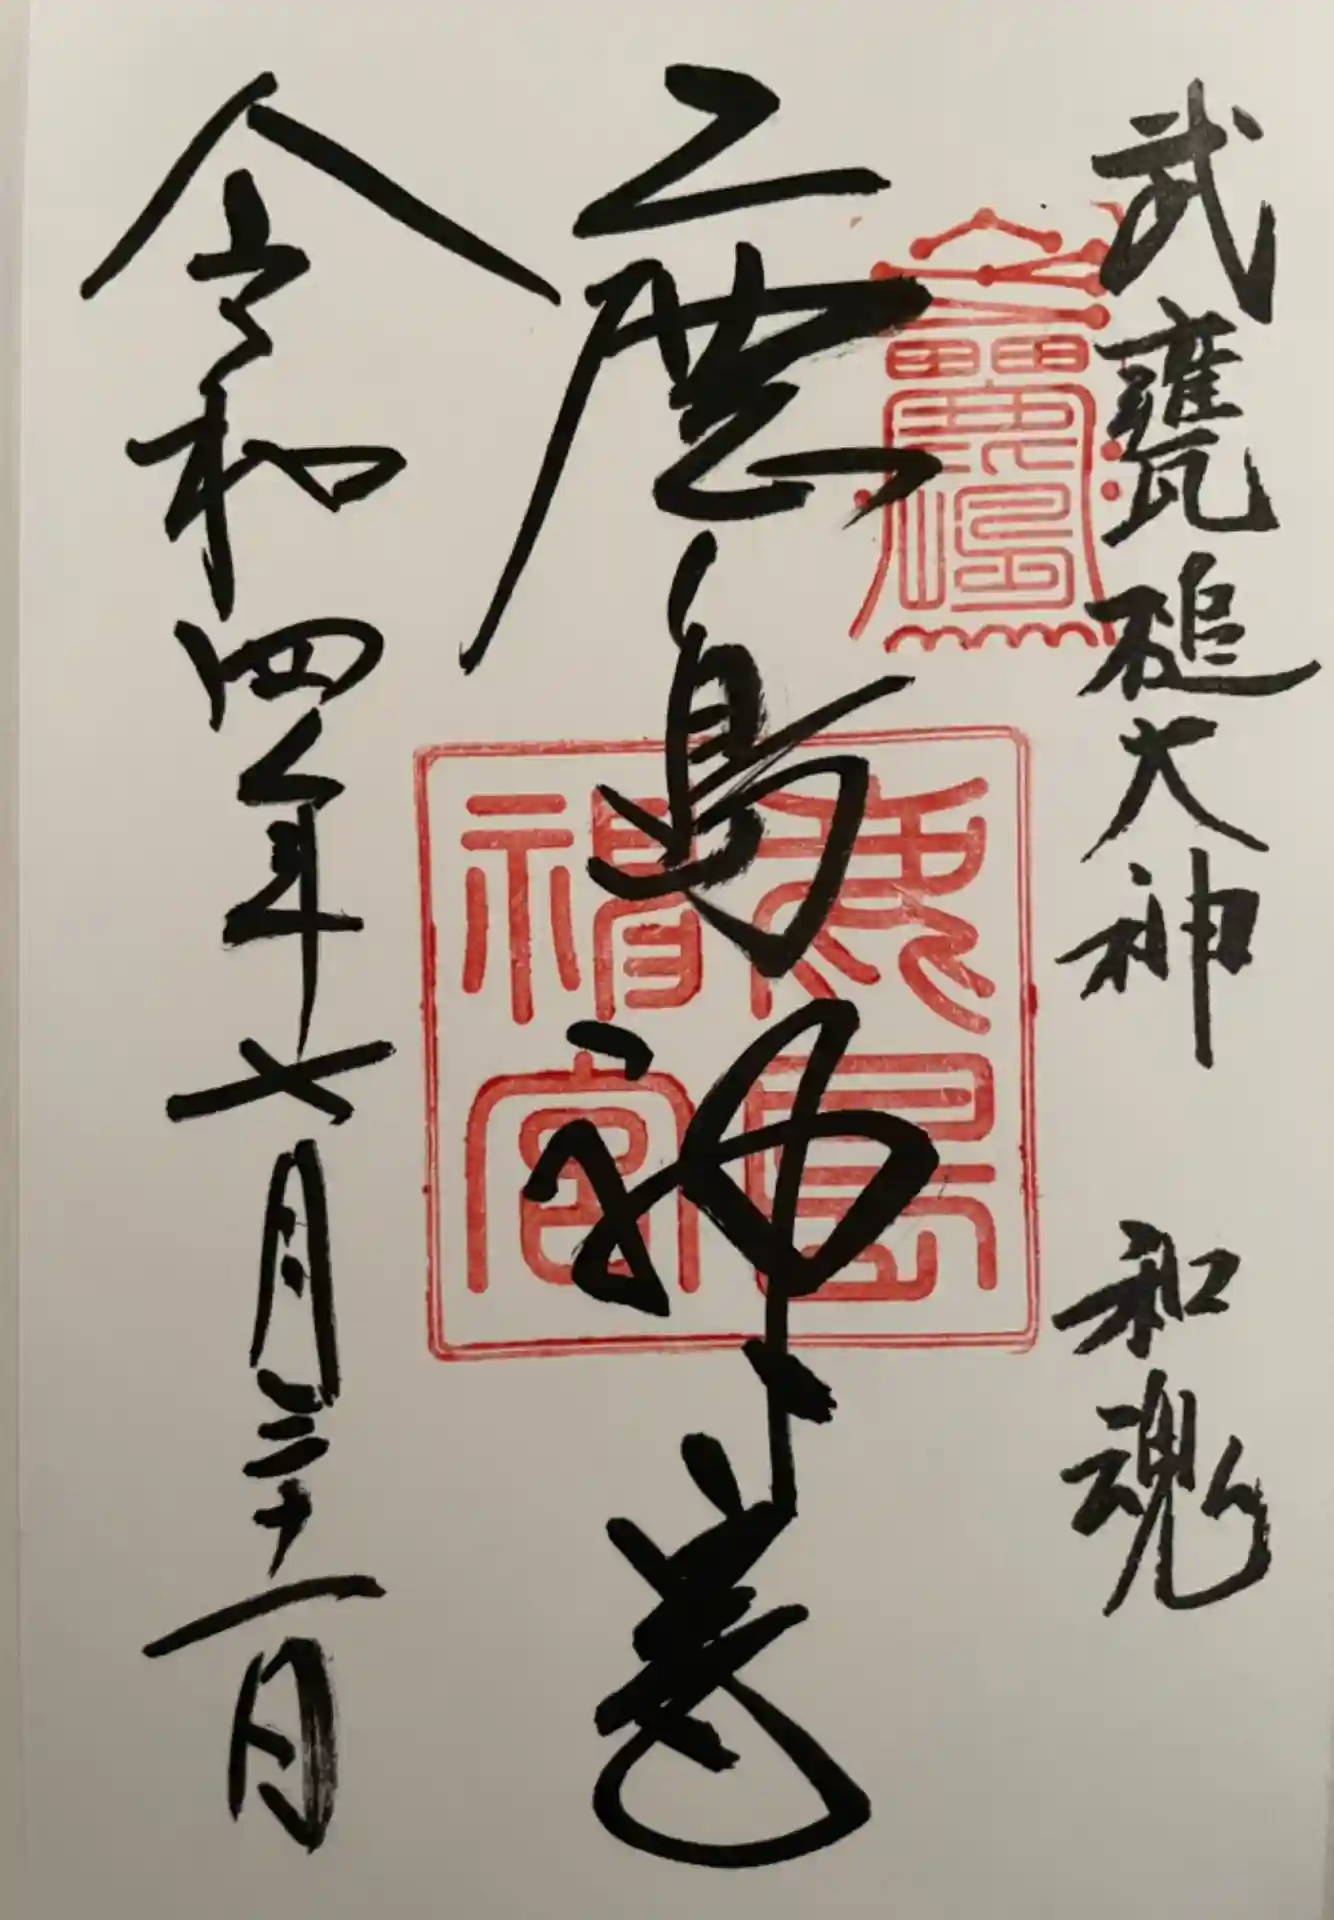 武甕槌大神 和魂
鹿島神宮
鹿島
神宮
令和四年七月三十一日